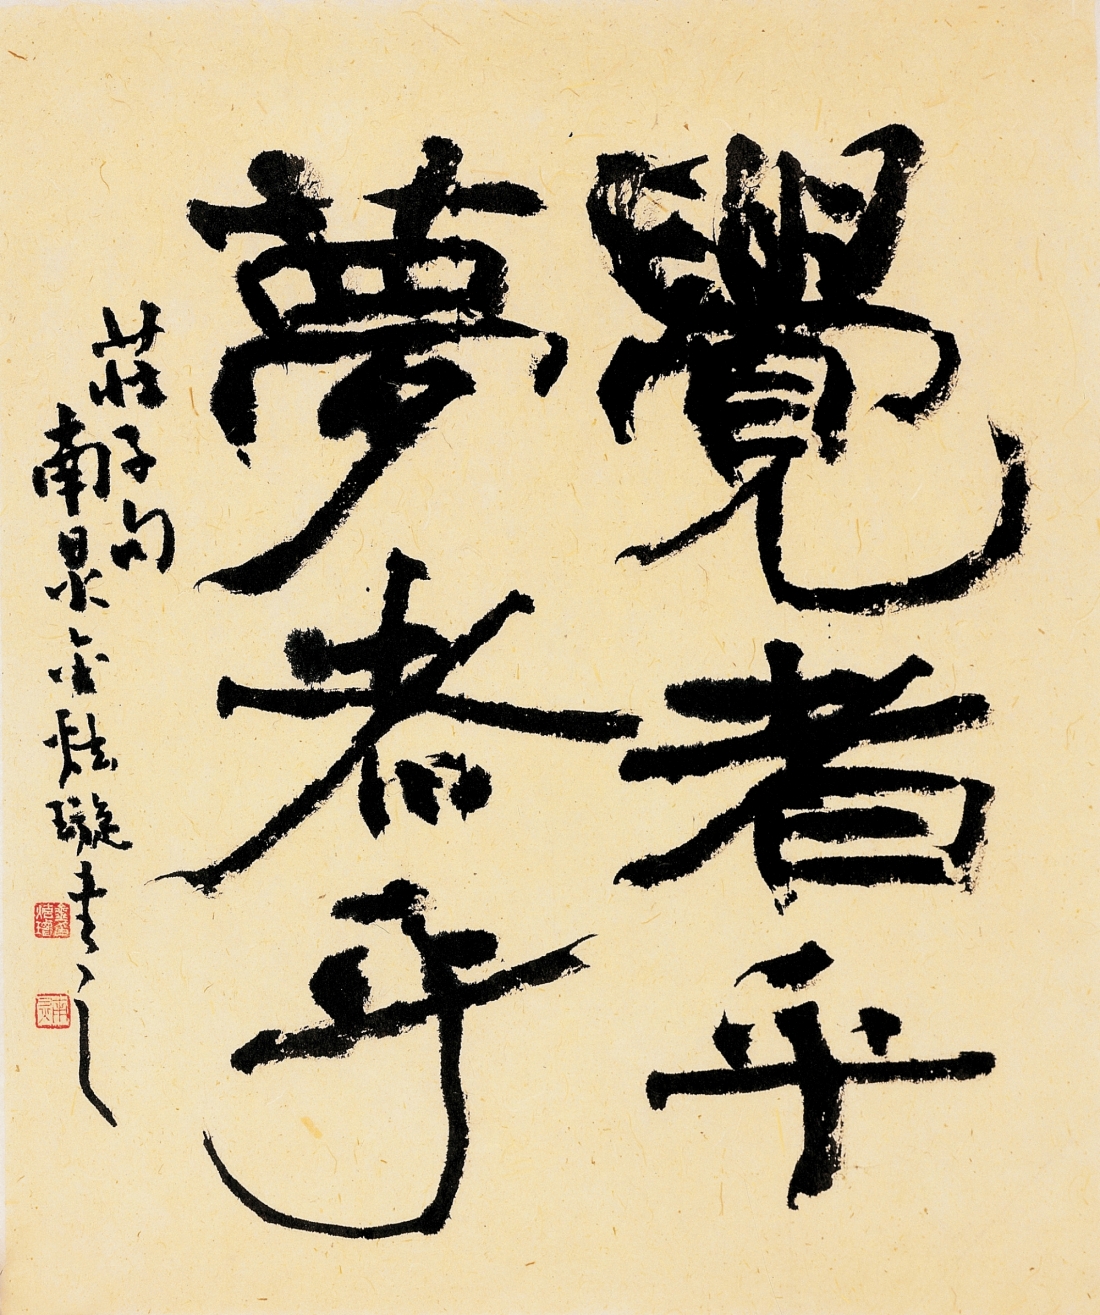 覺者乎
夢者乎
莊子句
南泉金炫璇書之